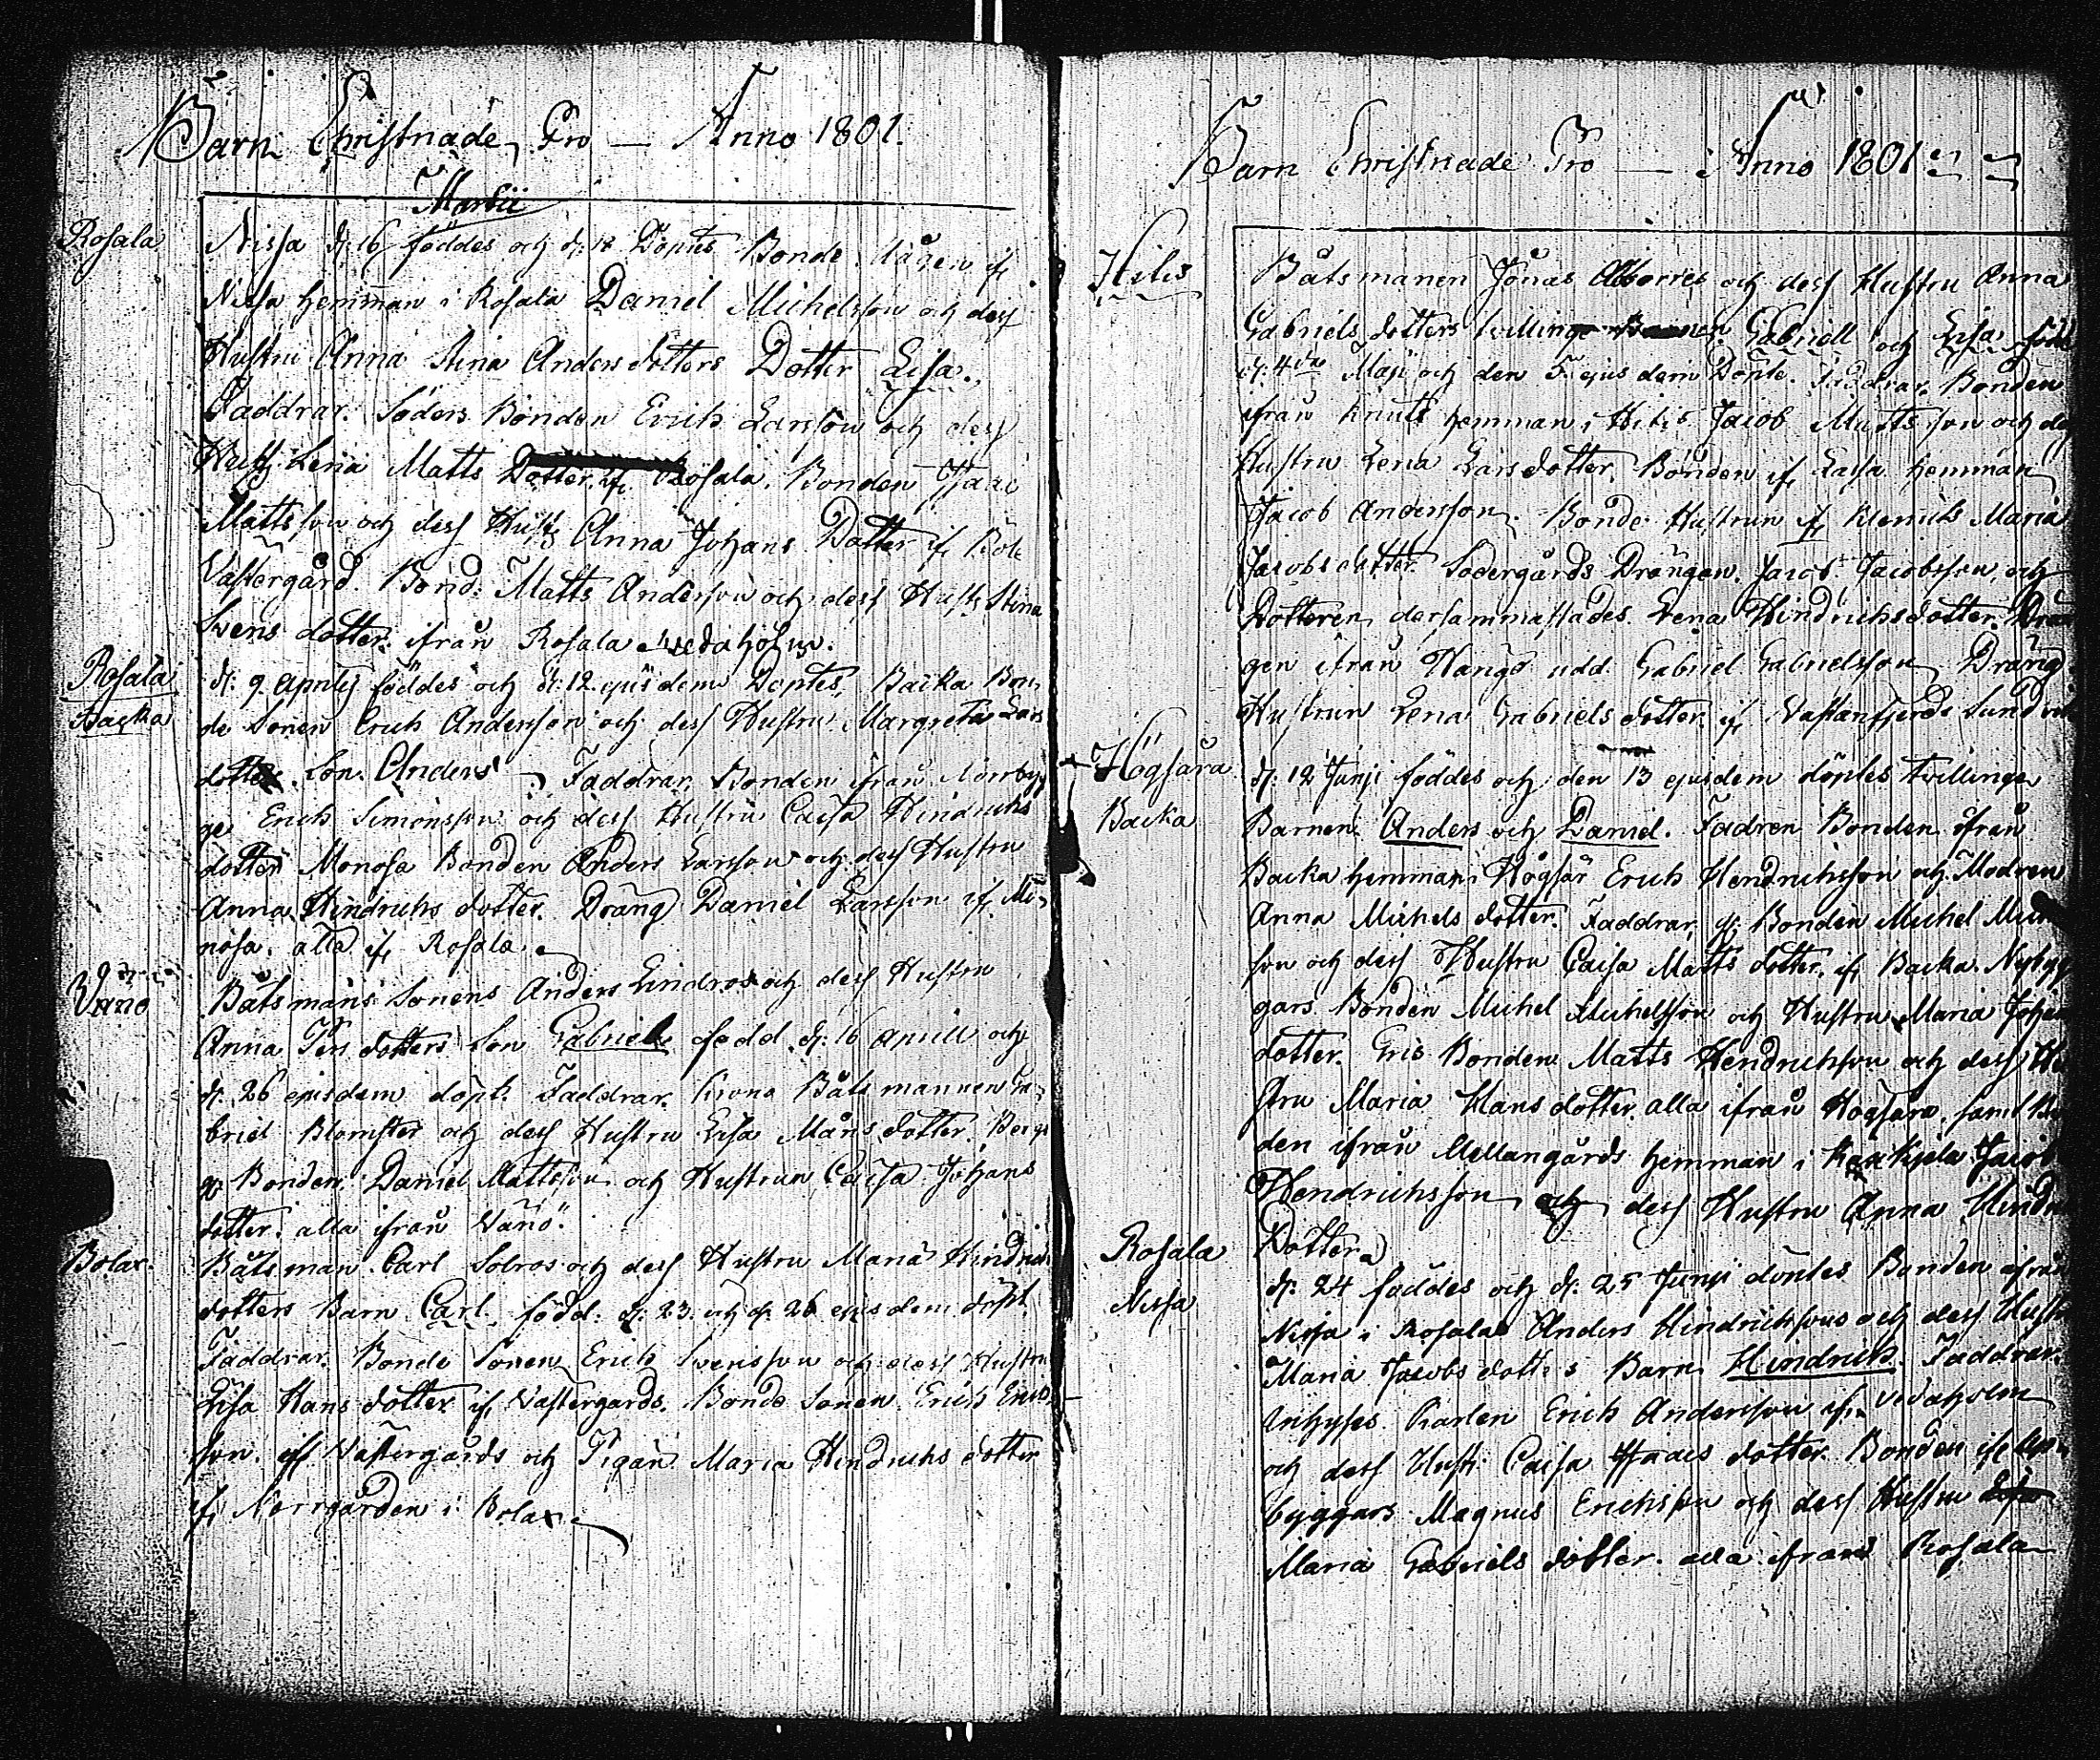 Barn Christnade Pro — Anno 1801.
Martii
Rosala
Nissa d: 16 föddes och d: 18 Döptes Bonde Mågen if
Nissa hemman i Rosala Daniel Michelsson och dess
Hustru Anna Stina Anders dotters Dotter Lisa.
Faddrar. Söders Bonden Erich Larsson och dess
Hust: Lena Matts Dotter. if. Rosala. Bonden Isaac
Mattsson och dess Hust: Anna Johans Dotter if Böle
Västergård. Bond: Matts Andersson och dess Hust: Stina
Svens dotter. ifrån Rosala Vedaholm.
Rosala
Backa
d: 9. Aprilij föddes och d: 12. ejusdem Döptes, Backa Bon-
de Sonen Erich Andersson och dess Hustru Margreta Lars
dotter. Son. Anders. Faddrar. Bonden ifrån Norrbyg
ge Erich Simonsson och dess Hustru Caisa Hindrichs
dotter Monosa Bonden Anders Larsson och dess Hustru
Anna Hindrichs dotter. Dräng Daniel Larsson if. Mo-
nosa. alla if. Rosala.
Vänö
Båtsmans Sonens Anders Lindros och dess Hustru
Anna Pers dotters Son Gabriel född. d: 16 April och
d: 26 ejusdem döpt. Faddrar. Krono Båtsmannen Ga-
briel Blomster och dess Hustru Lisa Måns dotter.
Bonden Daniel Mattsson och Hustrun Caisa Johans
dotter. alla ifrån Vänö.
Bolax.
Båtsman Carl Solros och dess Hustru Maria Hindrichs
dotters Barn Carl. född. d: 23. och d: 26 ejusdem döpt.
Faddrar. Bonde Sonen Erich Svensson och dess Hustru
Lisa Hans dotter if Västergårds. Bonde Sonen Erich Erics-
son. if Västergårds och Pigan Maria Hindrichs dotter
if. Norrgården i Bolax.
Barn Christnade Pro — Anno 1801
Hitis
Båtsmanen Jonas Abborres och dess Hustru Anna
Gabriels dotters tvillinge Barnen Gabriell och Lisa född
d: 4da Maji och den 5. ejusdem Dönte. Faddrar. Bonden
ifrån Knuts hemman i Hitis Jacob Mattsson och dess
Hustru Lena Larsdotter. Bonden if. Lassa hemman
Jacob Andersson. Bonde Hustrun if Klemits Maria
Jacobs dotter. Södergårds Drängen. Jacob Jacobsson, och
Dotteren dersammastädes Lena Hindrichsdotter. Drän
gen ifrån Hangö udd. Gabriel Gabrielsson, Dräng
Hustrun Lena Gabriels dotter. if. Västanfjerds Sundvik
Högsåra
Backa
d: 12 Junji föddes och den 13 ejusdem döptes tvillinge
Barnen. Anders och Daniel. Fadren Bonden ifrån
Backa hemman i Högsår Erich Hendrichsson och Modren
Anna Michels dotter. Faddrar. Bonden Michel
son och dess Hustru Caisa Matts dotter. if. Backa. Nybyg
gars Bonden Michel Michelsson och Hustru Maria Johans
dotter. Bonden Matts Hendrichsson och dess Hu
stru Maria Hans dotter. alla ifrån Högsåra. samt Bon
den ifrån Mellangårds hemman i Jacob
Hendrichsson och dess Hustru Anna Hindr
Dotter.
Rosala
Nissa
d: 24 föddes och d: 25 Junji döntes Bonden ifrån
Nissa i Rosala Anders Hindrichsons och dess Hustr
Maria Jacobs dott: s Barn Hindrich. Faddrar.
Inhyses Karlen Erich Andersson if. Vedaholm
och dess Hust: Caisa Isaacs dotter. Bonden if
byggars Magnus Erichsson och dess Hustru
Maria Gabriels dotter. alla ifrån Rosala